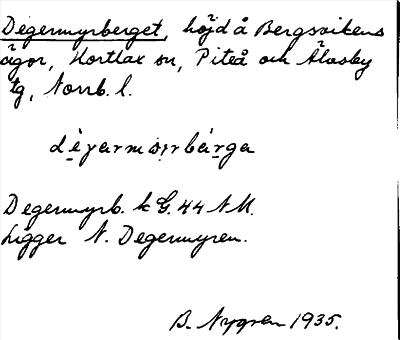 Degermyrberget, höjd å Bergsvikens
ägor, Hortlax sn, Piteå och Älvsby
tg, Norrb. l.
Degermyrb. k G. 44 N M.
Ligger N. Degermyren.
B. Nygren 1935.